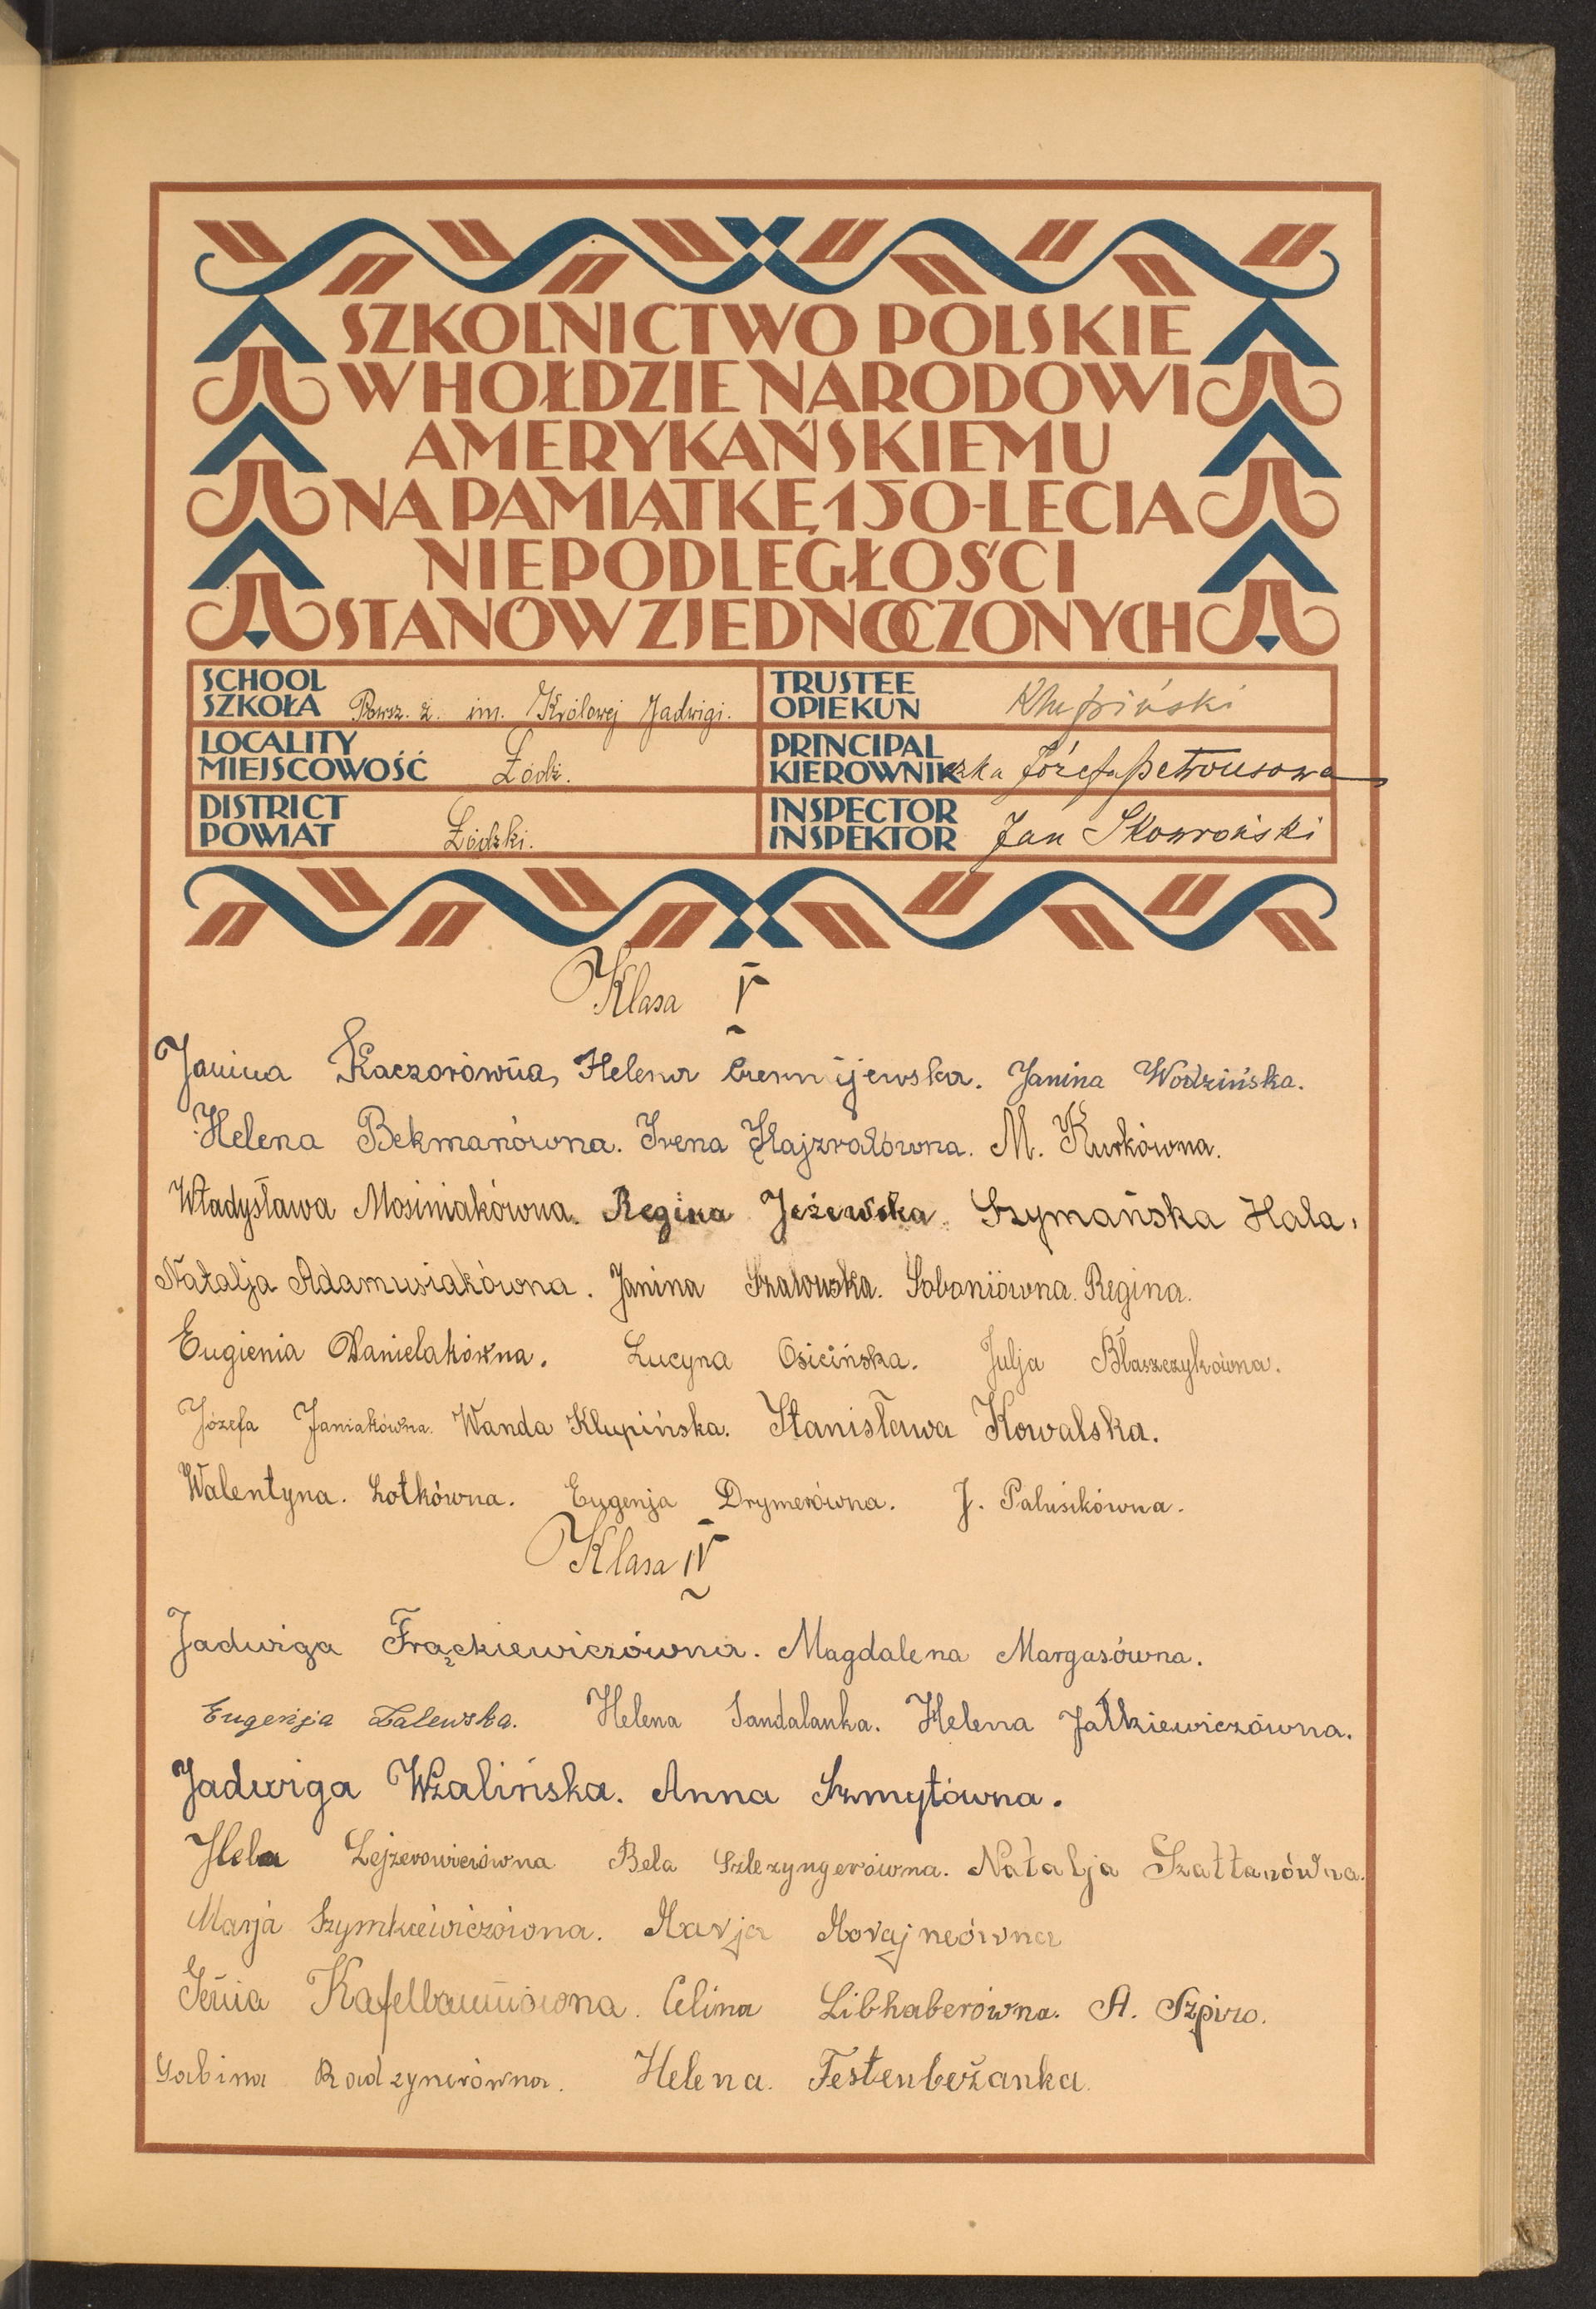 SZKOLNICTWO POLSKIE
W HOŁDZIE NARODOWI
AMERYKAŃSKIEMU
NA PAMIĄTKĘ 150-LECIA
NIEPODLEGŁOŚCI
STANÓW ZJEDNOCZONYCH
SCHOOL
SZKOŁA Powsz. ż. im. Królowej Jadwigi.
TRUSTEE
OPIEKUN Klupiński
LOCALITY
MIEJSCOWOŚĆ Łódź.
PRINCIPAL
KIEROWNIKczka Józefa Petrousowa
DISTRICT
POWIAT Łódzki.
INSPECTOR
INSPEKTOR Jan Skowroński
Klasa V
Janina Kaczorówna, Helena Janina Wodzińska.
Helena Bekmanówna. Irena M. Kurkówna.
Władysława Mosiniakówna. Regina Jeżewska. Szymańska Hala.
Natalja Adamusiakówna. Janina Szalowska. Sobaniówna Regina.
Eugienia Danielakówna. Lucyna Osicińska. Julja Błaszczykówna.
Józefa Janiakówna. Wanda Klupińska. Stanisława Kowalska.
Walentyna. Lotkówna. Eugenja Drymerówna. J. Paluśikówna.
Klasa IV
Jadwiga Frąckiewiczówna. Magdalena Margasówna.
Eugenja Zalewska. Helena Sandalanka. Helena Jałkiewiczówna.
Jadwiga Wzalińska. Anna Szmytówna.
Hela Lejzerowiczówna Bela Szlezyngerówna. Natalja Szattanówna.
Marja Szymkiewiczówna. Marja
Genia Celina Libhaberówna. A. Szpiro.
Sabina Radzynerówna. Helena. Festenberżanka.